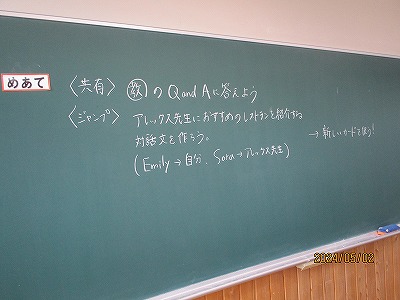 めあて
〈共有〉 教のQ and Aに答えよう
〈ジャンプ〉 アレックス先生におすすめのレストランを紹介する
対話文を作ろう。
(Emily→自分、Sora→アレックス先生)
→新しいカードで使う!
2024/05/02